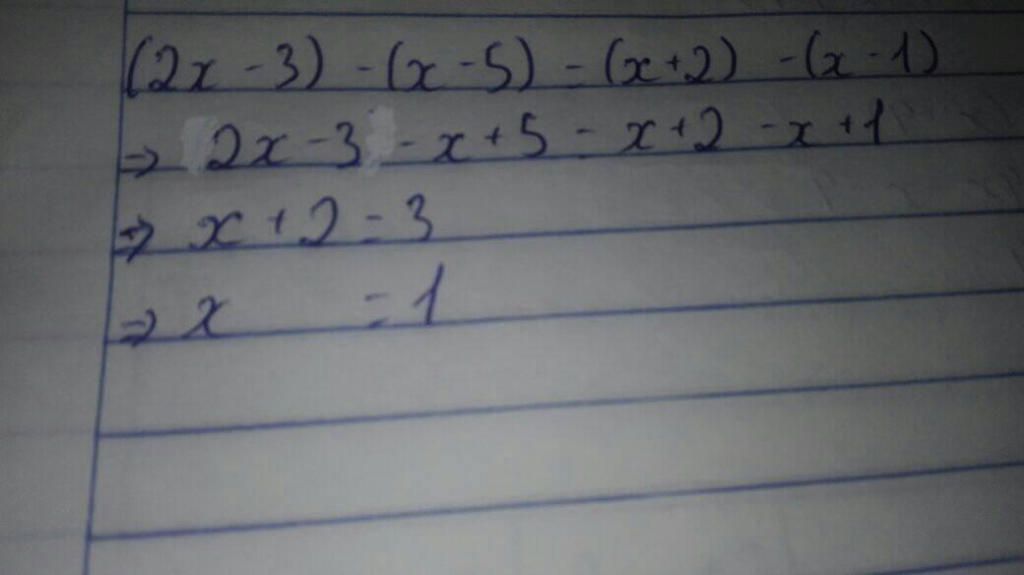 (2x - 3) - (x - 5) = (x + 2) - (x - 1)
⇒ 2x - 3 - x + 5 = x + 2 - x + 1
⇒ x + 2 = 3
⇒ x = 1